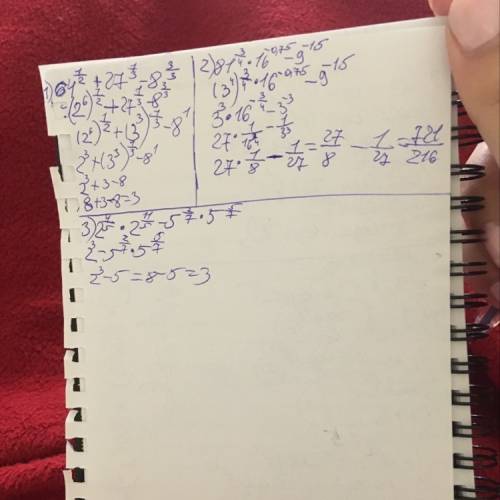 1) 64^{1/2} + 27^{1/3} - 8^{3/3}
(2^6)^{1/2} + 27^{1/3} - 8^{3/3}
(2^6)^{1/2} + (3^3)^{1/3} - 8^1
2^3 + (3^3)^{1/3} - 8^1
2^3 + 3 - 8
8 + 3 - 8 = 3
2) 81^{3/4} · 16^{-0,75} - 9^{-1,5}
(3^4)^{3/4} · 16^{-0,75} - 9^{-1,5}
3^3 · 16^{-3/4} - 3^{-3}
27 · 1/16^{3/4} - 1/3^3
27 · 1/8 - 1/27 = 27/8 - 1/27 = 721/216
3) 2^{4/5} · 2^{11/5} - 5^{2/7} · 5^{5/7}
2^3 - 5^{2/7} · 5^{5/7}
2^3 - 5 = 8 - 5 = 3